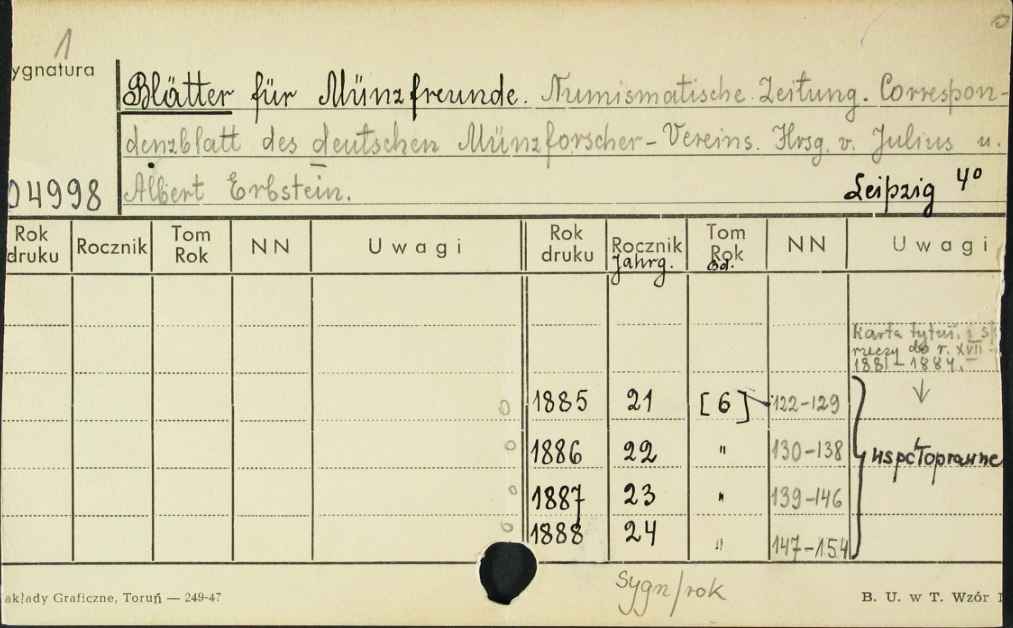 1
ygnatura
Blätter für Münzfreunde. Numismatische Zeitung. Correspon-
denzblatt des deutschen Münzforscher-Vereins. Hrsg. v. Julius u.
04998 Albert Erbstein. Leipzig 4°
Rok druku Rocznik Tom Rok NN Uwagi Rok druku Rocznik Jahrg. Tom Rok Bd. NN Uwagi
Karta tytuł. i
rzeczy do r. XVII
1881-1884.
1885 21 [6] 122-129
1886 22 " 130-138 współoprawne
1887 23 " 139-146
1888 24 " 147-154
Sygn/rok
akłady Graficzne, Toruń — 249-47 B. U. w T. Wzór